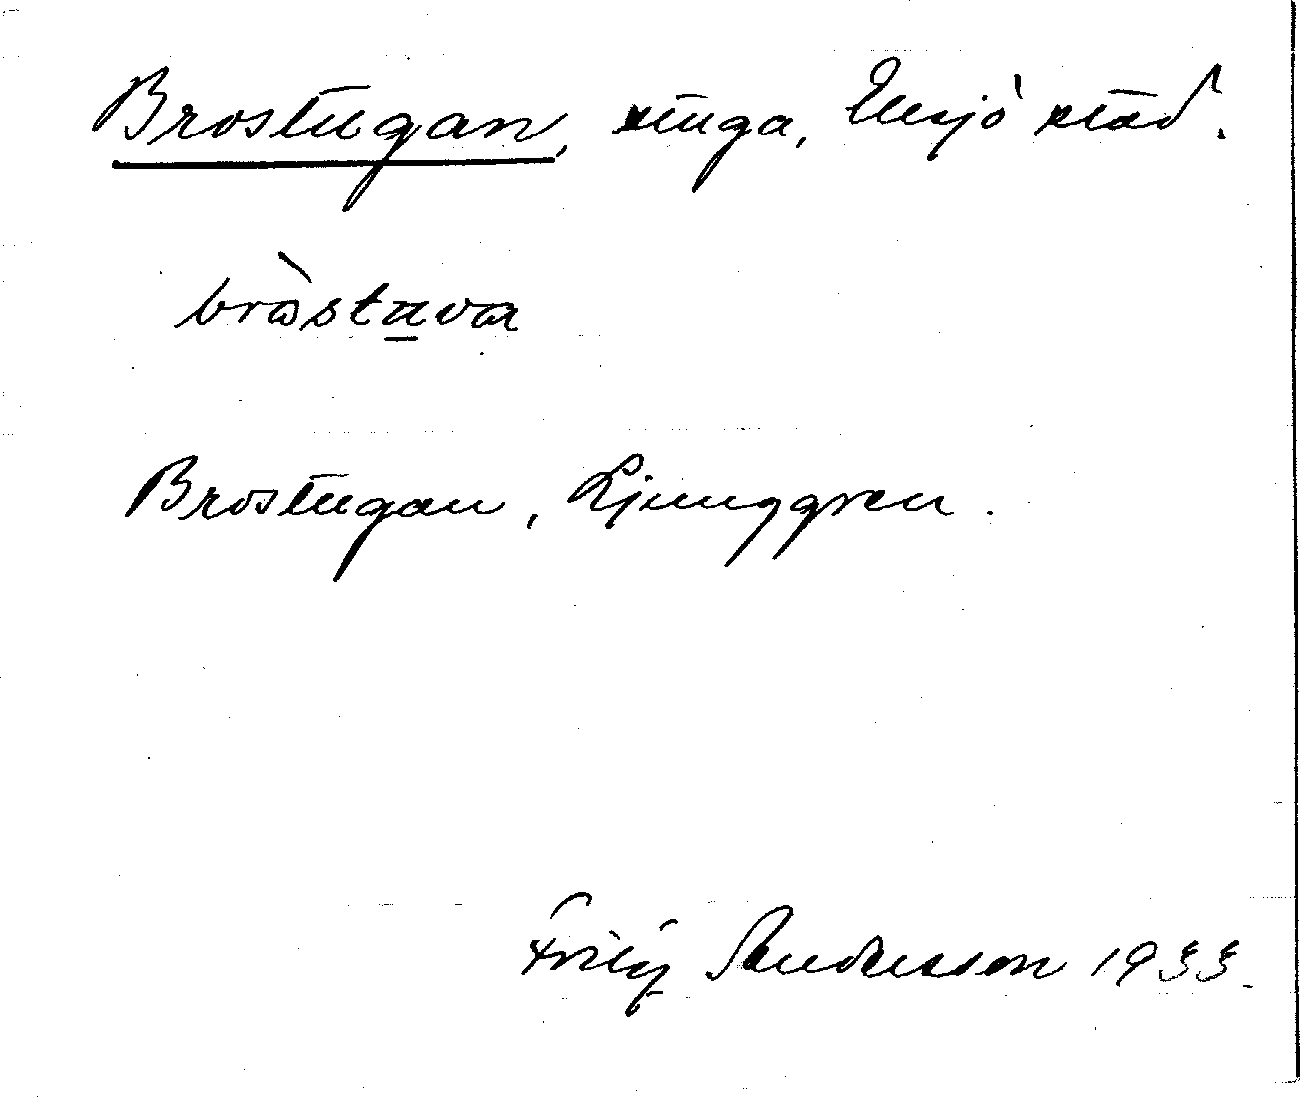 Brostugan, stuga, Eksjö stad.
bròstava
Brostugan, Ljunggren.
Fritz Andersson 1933.